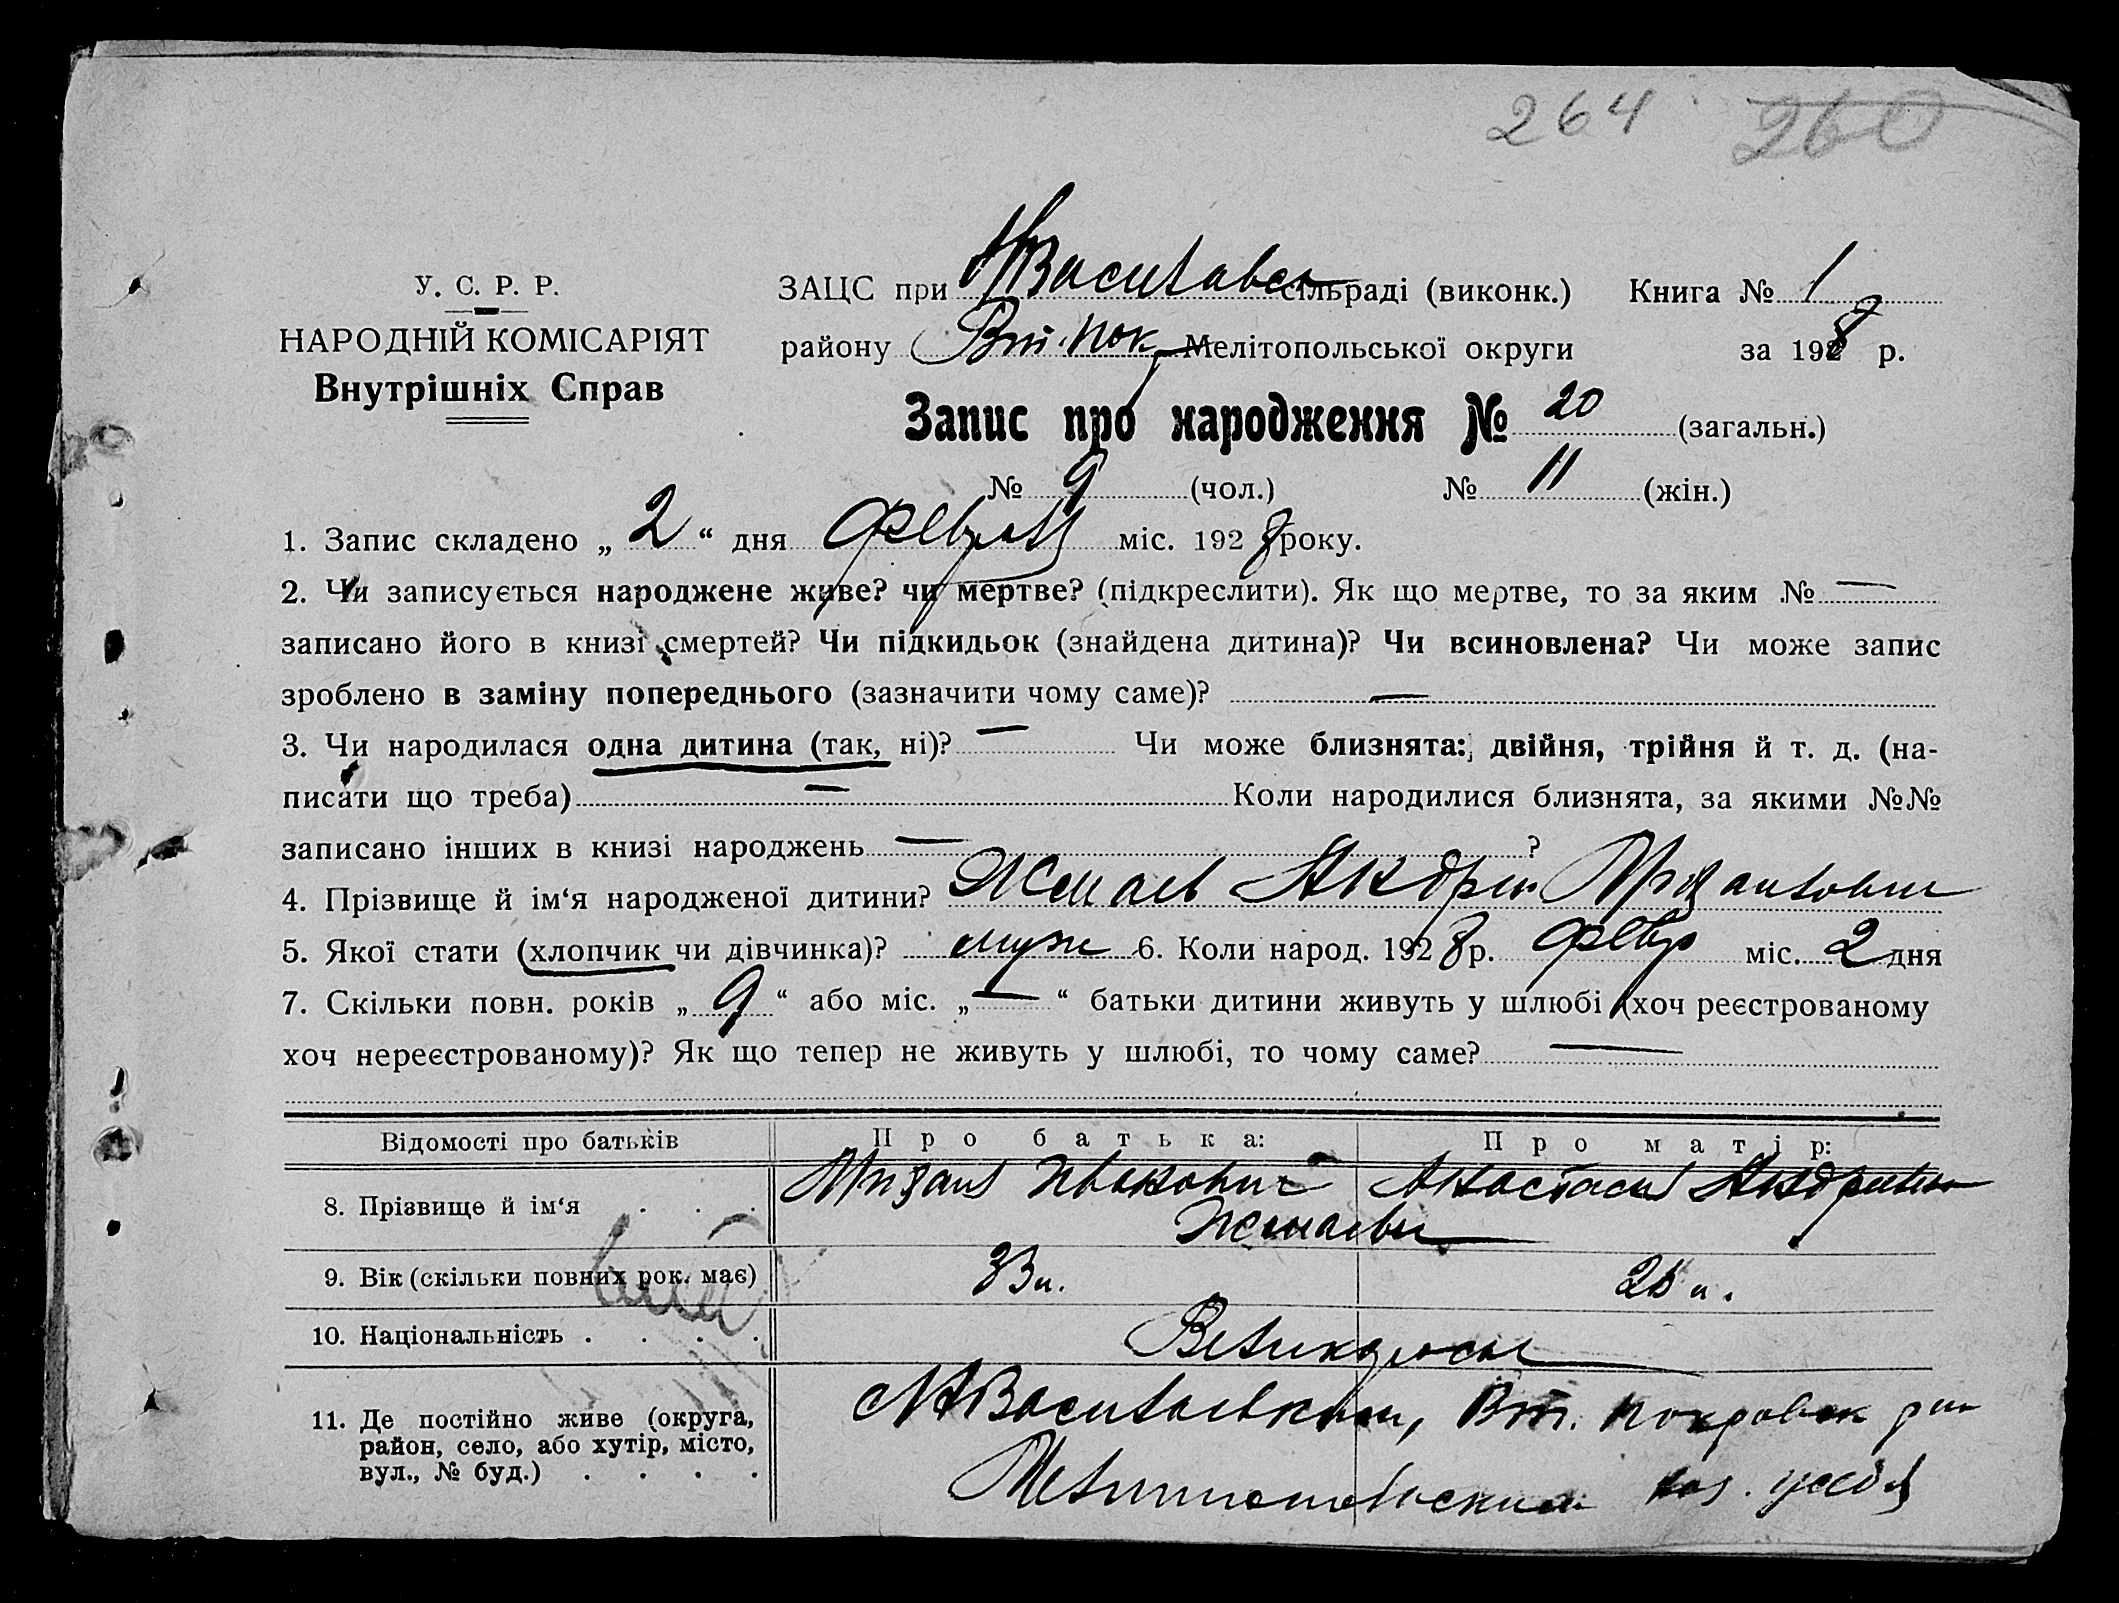 264 260
У. С. Р. Р.
НАРОДНІЙ КОМІСАРІЯТ
Внутрішніх Справ
ЗАЦС при НВасилавск сільраді (виконк.) Книга № 1
району Вт. Пок. Мелітопольської округи за 1928 р.
Запис про народження № 20 (загальн.)
№ 9 (чол.) № 11 (жін.)
1. Запис складено „ 2 “ дня феврал міс. 1928 року.
2. Чи записується народжене живе? чи мертве? (підкреслити). Як що мертве, то за яким № —
записано його в книзі смертей? Чи підкидьок (знайдена дитина)? Чи всиновлена? Чи може запис
зроблено в заміну попереднього (зазначити чому саме)? —
3. Чи народилася одна дитина (так, ні)? — Чи може близнята: двійня, трійня й т. д. (на-
писати що треба) — Коли народилися близнята, за якими №№
записано інших в книзі народжень — ?
4. Прізвище й ім‘я народженої дитини? Андрей
5. Якої стати (хлопчик чи дівчинка)? муж 6. Коли народ. 1928 р. февр міс. 2 дня
7. Скільки повн. років „ 9 “ або міс. „ — “ батьки дитини живуть у шлюбі (хоч реєстрованому
хоч нереєстрованому)? Як що тепер не живуть у шлюбі, то чому саме? —
Відомості про батьків Про батька: Про матір:
8. Прізвище й ім‘я . . . Михаил Иванович Анастасия Андреевна
9. Вік (скільки повних рок. має) 33 л.
10. Національність . . . . Великоросы
11. Де постійно живе (округа,
район, село, або хутір, місто,
вул., № буд.) . . . .
НВасилевкии, Вт. Покровск
Мелитопольскии